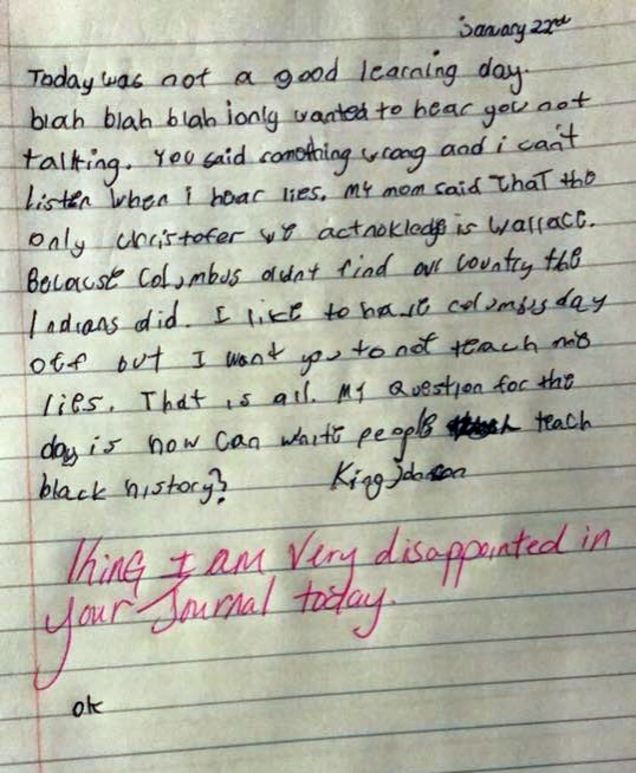 January 22nd
Today was not a good learning day.
blah blah blah i only wanted to hear you not
talking. You said something wrong and i can't
listen when i hear lies. My mom said That the
only christofer we acknokledge is wallace.
Because Columbus didnt find our country the
Indians did. I like to have columbus day
off but I want you to not teach me
lies. That is all. My Question for the
day is how can white people teach
black history?
King Johnson
King I am very disappointed in
your Journal today.
ok